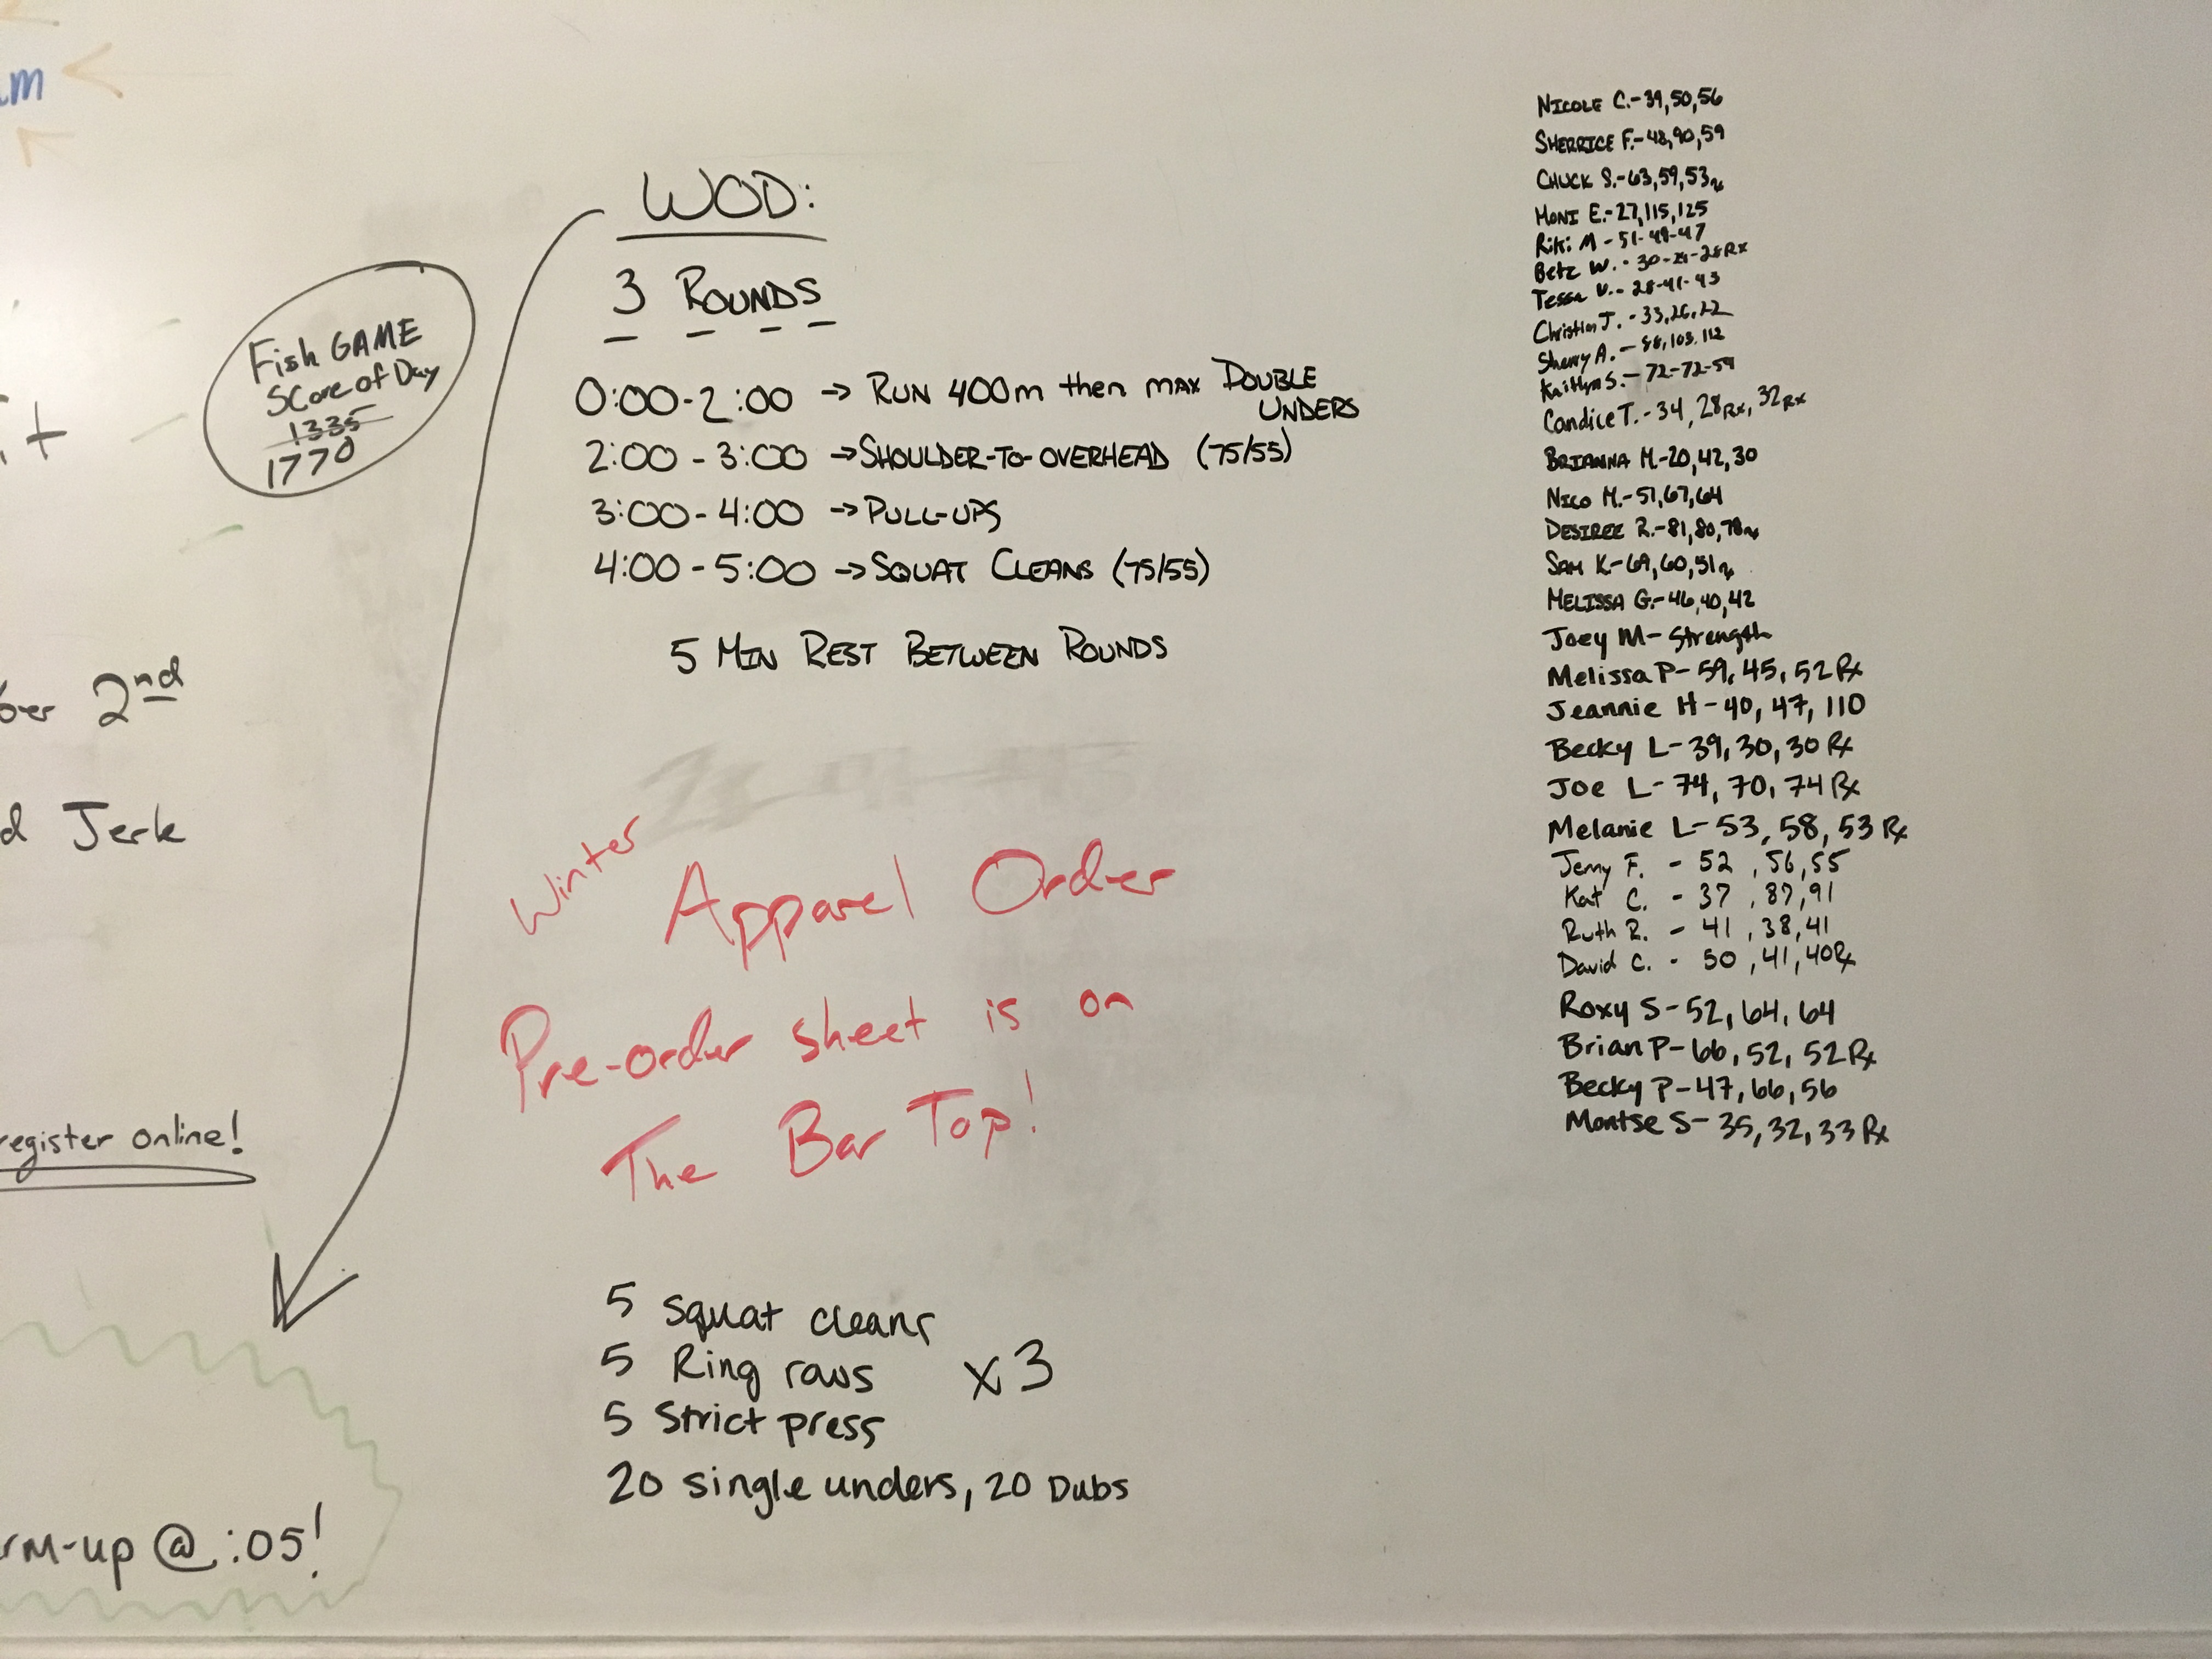 m
Fish GAME
Score of Day
1335
1770
2nd
Jerk
register online!
rm-up @ :05!
WOD:
3 ROUNDS
0:00-2:00 -> RUN 400m then max DOUBLE
UNDERS
2:00 - 3:00 -> SHOULDER-TO-OVERHEAD (75/55)
3:00 - 4:00 -> PULL-UPS
4:00 - 5:00 -> SQUAT CLEANS (75/55)
5 MIN REST BETWEEN ROUNDS
Winter Apparel Order
Pre-order sheet is on
The Bar Top!
5 squat cleans
5 Ring rows x3
5 Strict press
20 single unders, 20 Dubs
NICOLE C.-39,50,56
SHERRICE F.-48,90,59
CHUCK S.-63,59,53
MONI E.-27,115,125
Riki M - 51-49-47
Betz W. - 30- -28Rx
Tessa V. - 28-41-43
Christian J. - 33,26,22
Sherry A. - 88,103,112
Kaitlyn S. - 72-72-59
Candice T. - 34, 28Rx, 32Rx
BRIANNA M.-20,42,30
NICO M.-51,67,64
DESIREE R.-81,80,78
SAM K-69,60,51
MELISSA G.-46,40,42
Joey M- Strength
Melissa P- 59, 45, 52 Rx
Jeannie H - 40, 47, 110
Becky L- 39, 30, 30 Rx
Joe L- 74, 70, 74 Rx
Melanie L- 53, 58, 53 Rx
Jenny F. - 52 , 56, 55
Kat C. - 37 , 87, 91
Ruth R. - 41 , 38, 41
David C. - 50 , 41, 40Rx
Roxy S - 52, 64, 64
Brian P- 66, 52, 52 Rx
Becky P- 47, 66, 56
Montse S- 35, 32, 33 Rx